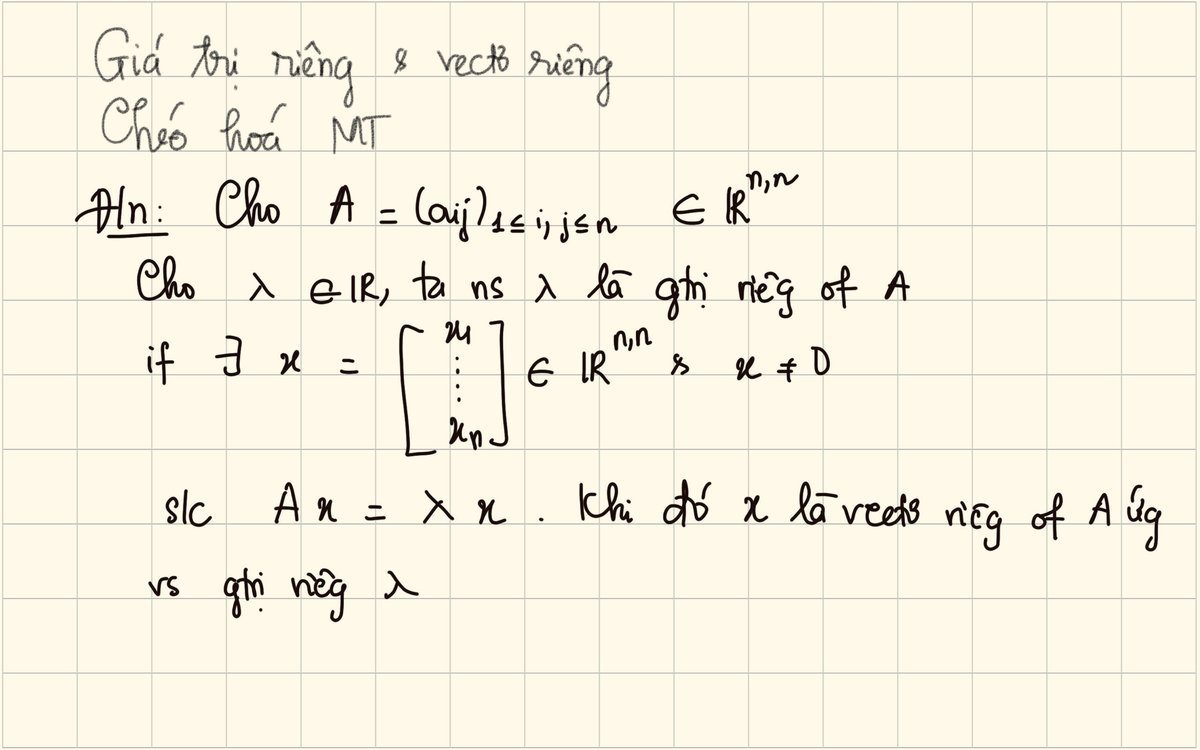 Giá trị riêng & vectơ riêng
Chéo hoá MT
Đ/n: Cho A = (aij)1≤i,j≤n ∈ ℝ^n,n
Cho λ ∈ ℝ, ta ns λ là gtrị riêg of A
if ∃ x = [x1 ⋮ xn] ∈ ℝ^n,n & x ≠ 0
s/c Ax = λx. Khi đó x là vectơ riêg of A ứg
vs gtrị riêg λ